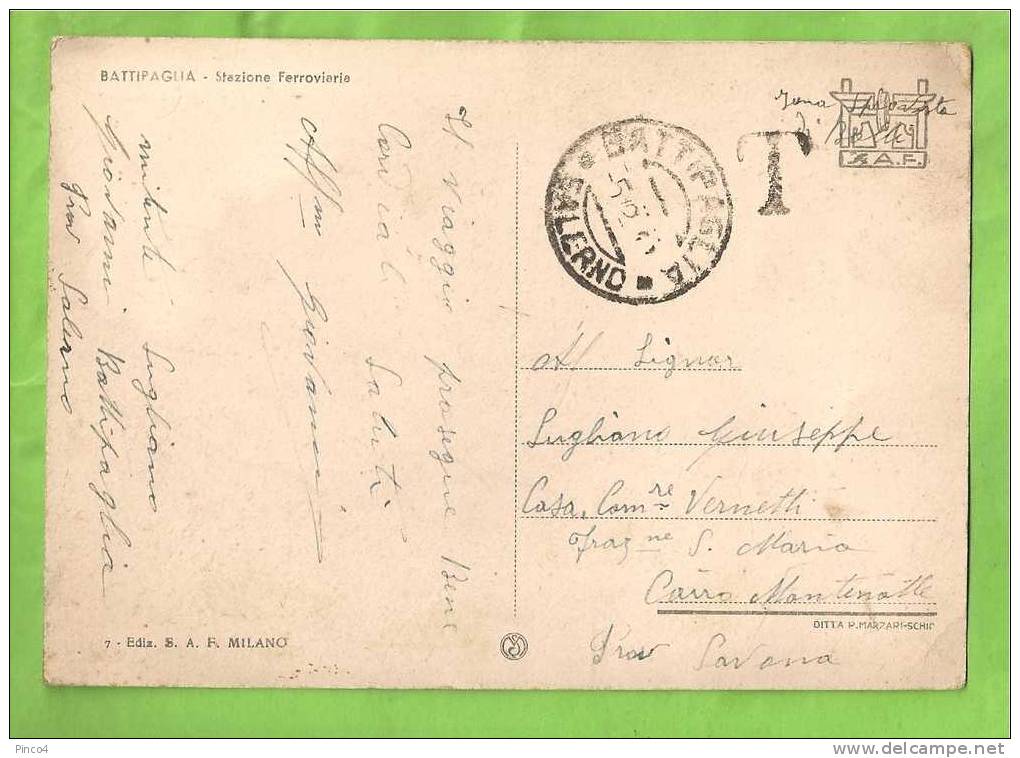 BATTIPAGLIA - Stazione Ferroviaria
Il viaggio prosegue Bene
Cordiali Saluti
Aff/mo Giovanni
mittente Sugliano
Giovanni Battipaglia
Prov Salerno
7 - Ediz. S. A. F. MILANO
Zona
S.A.F.
T
BATTIPAGLIA
SALERNO
Al Signor
Sugliano Giuseppe
Casa, Com.re Vernetti
Fraz.ne S. Maria
Cairo Montenotte
DITTA P. MARZARI-SCHIO
Prov Savona
Pinco4
delcampe.net